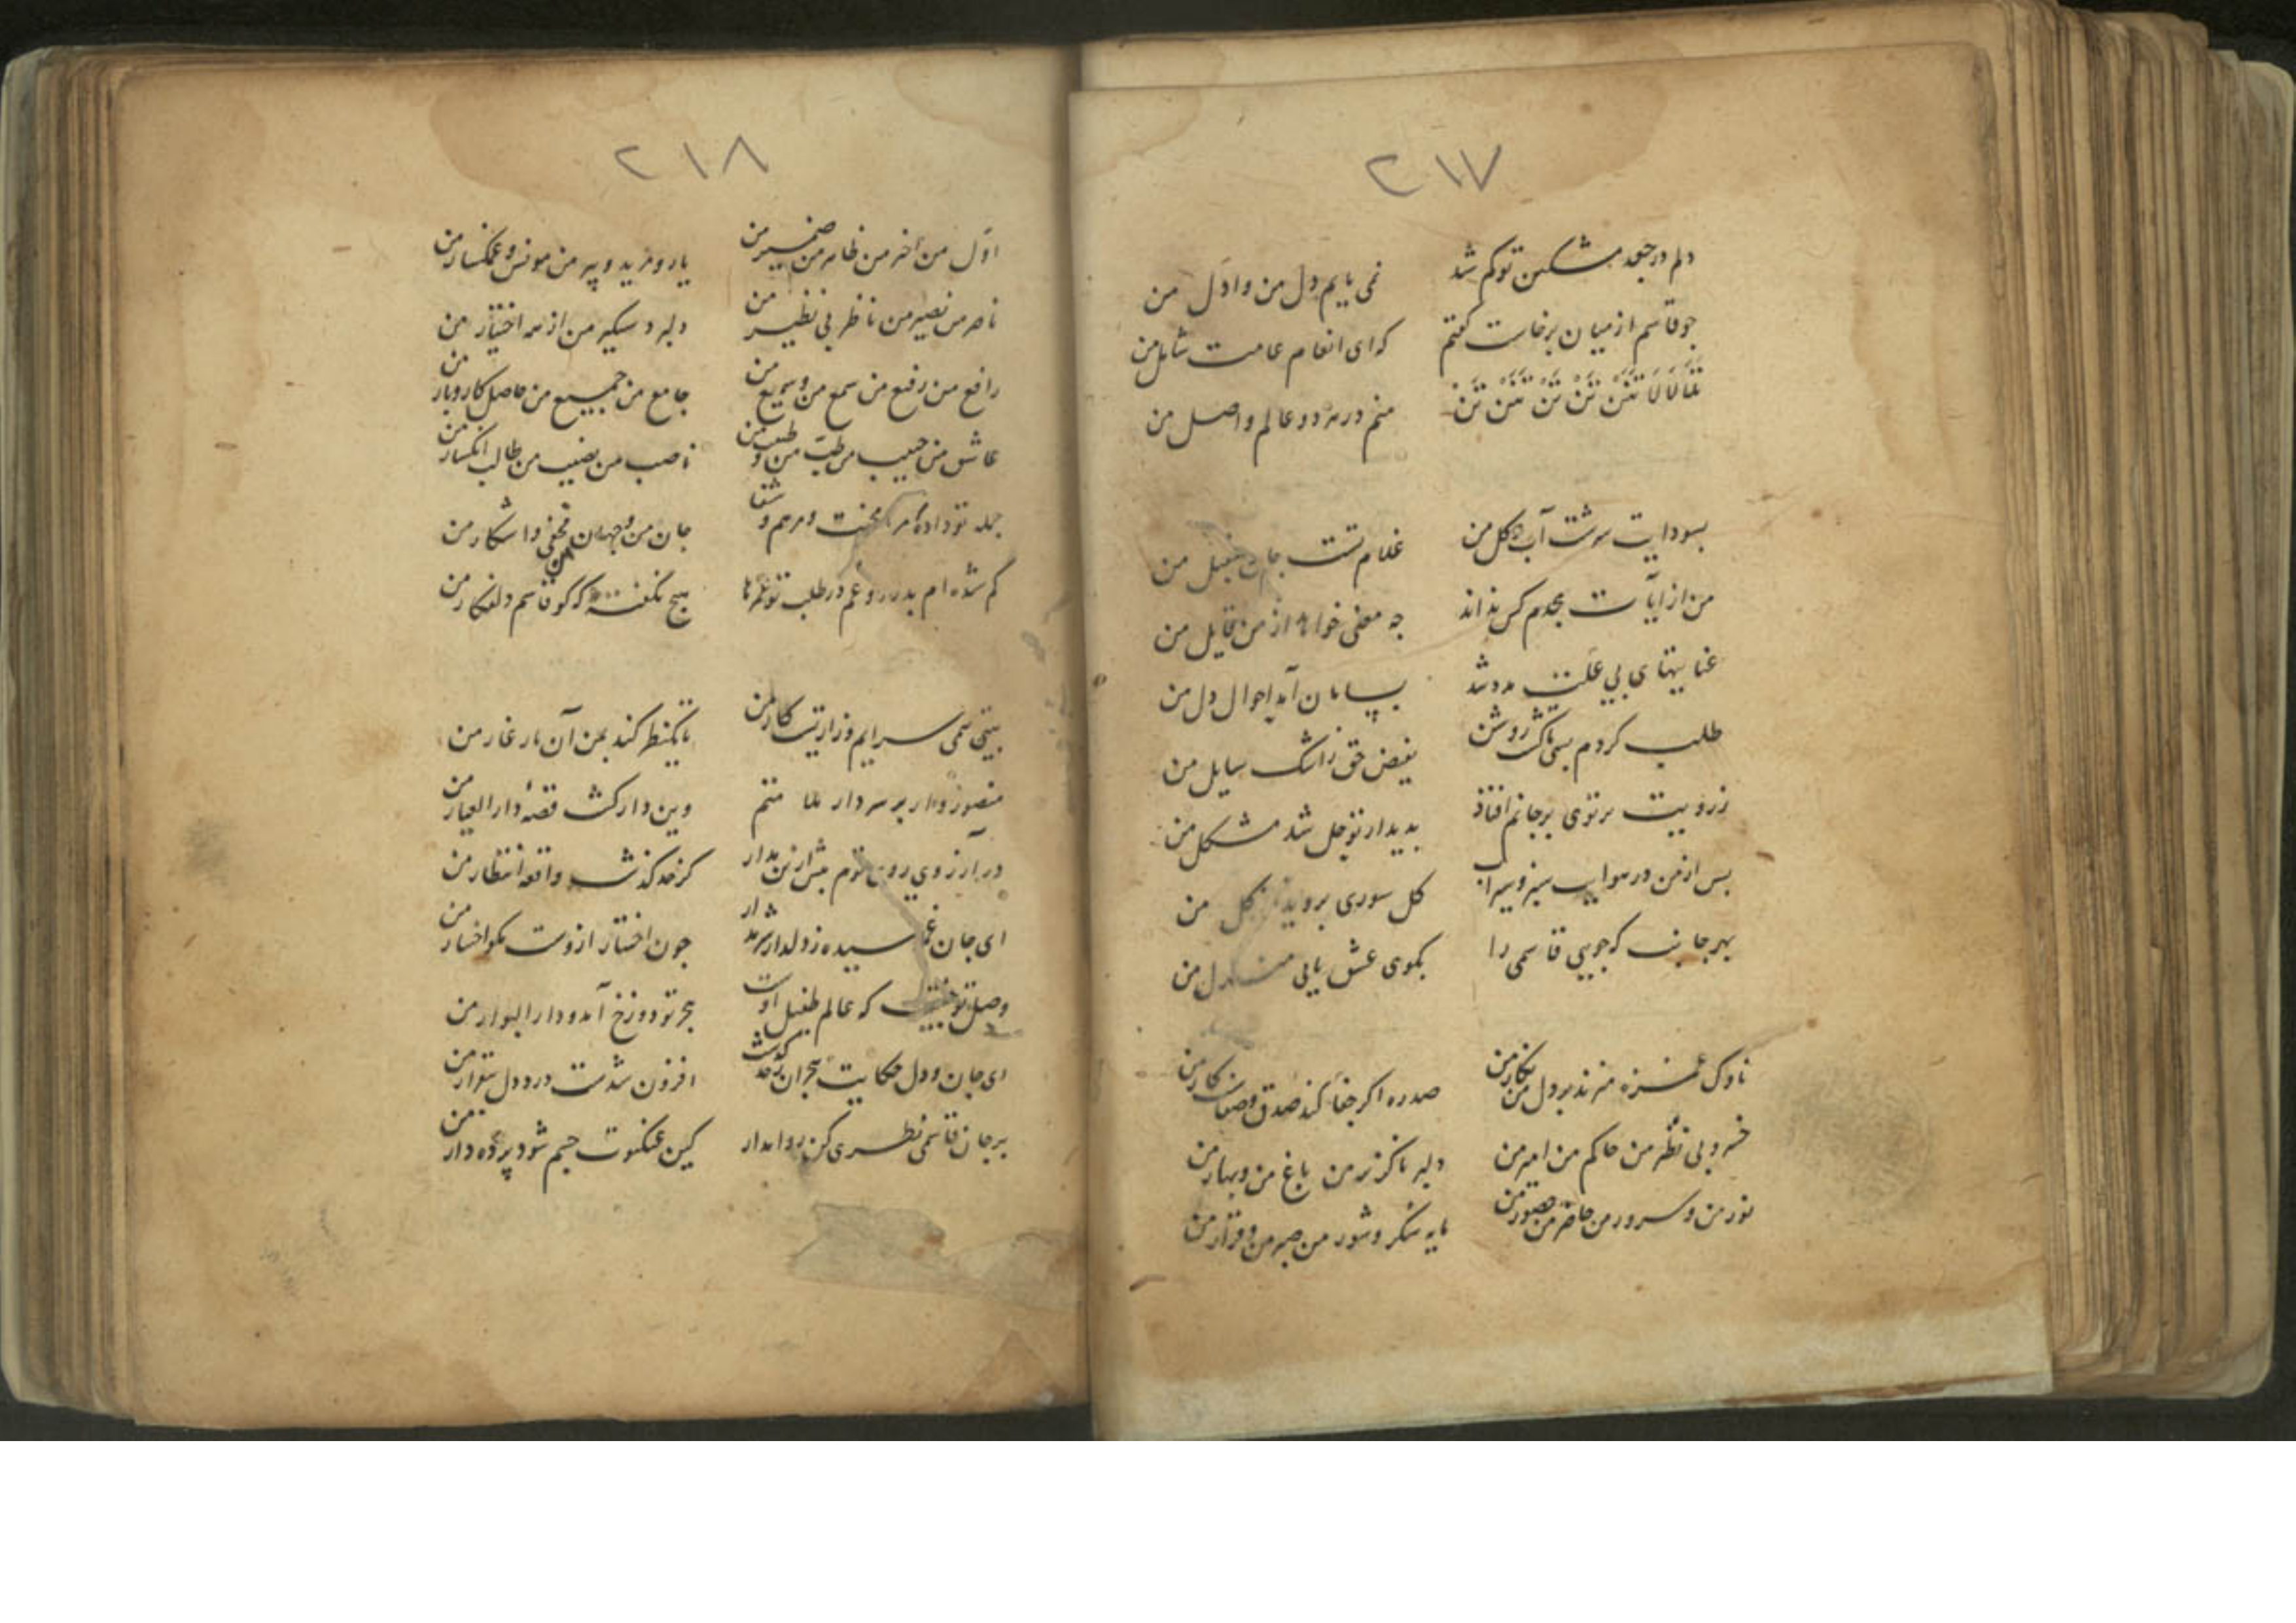 ۲۱۷
دلم در جعد مشکین تو کم شد نمی یابم دل من وا دل من
جو قاسم از میان برخاست کفتم که ای انعام عامت شامل من
تللالالا تنن تن تن تنن تن منم در هر دو عالم واصل من
بسودایت سرشت آب و کل من غلام تست جان مقبل من
من از آیات بجدم کس نداند جه معنی خواند از من قایل من
عنایتهای بی علت مدد شد بپایان آمد احوال دل من
طلب کردم بسی تا کشت روشن بفیض حق ز اشک سایل من
ز رویت برتوی بر جانم افتاد بدیدار تو حل شد مشکل من
بس از من در هوایت سبز و سیراب کل سوری بروید از کل من
بهر جانب که جویی قاسمی را بکوی عشق یابی منزل من
ناوک غمزه میزند بر دل من نکار من صد ره اکر جفا کند صدق و صفاست کار من
خسرو بی نظیر من حاکم من امیر من دلبر ناکزیر من باغ من و بهار من
نور من و سرور من حاضر من حضور من مایه شکر و شور من صبر من و قرار من
۲۱۸
اول من آخر من ظاهر من ضمیر من یار و مرید و پیر من مونس و غمکسار من
ناصر من نصیر من ناظر بی نظیر من دلبر دستکیر من از همه اختیار من
رافع من رفیع من سمع من و سمیع من جامع من جمیع من حاصل کار و بار من
عاشق من حبیب من طب من و طبیب من ناصب من نصیب من طالب انکسار من
جمله تو داده مرا محنت و مرهم و شفا جان من و جهان من مخفی و آشکار من
کم شده ام بدرد و غم در طلب تو عمرها هیچ نکفته که کو قاسم دلفکار من
بیتی نمی سرایم و زاریت کار من تا یکنظر کند بمن آن یار غار من
منصور وار بر سر دار بلا منم وین دار کشت قصه دار العیار من
در آرزوی روی توم بیش ازین مدار کز حد کذشت واقعه انتظار من
ای جان غم رسیده ز دلدار سر مدار جون اختیار ازوست نکو اختیار من
وصل تو جنتیست که عالم طفیل اوست هجر تو دوزخ آمد و دار البوار من
ای جان و دل حکایت هجران ز حد کذشت افزون شدست درد دل بیقرار من
بر جان قاسمی نظری کن روا مدار کین عنکبوت جسم شود پرده دار من